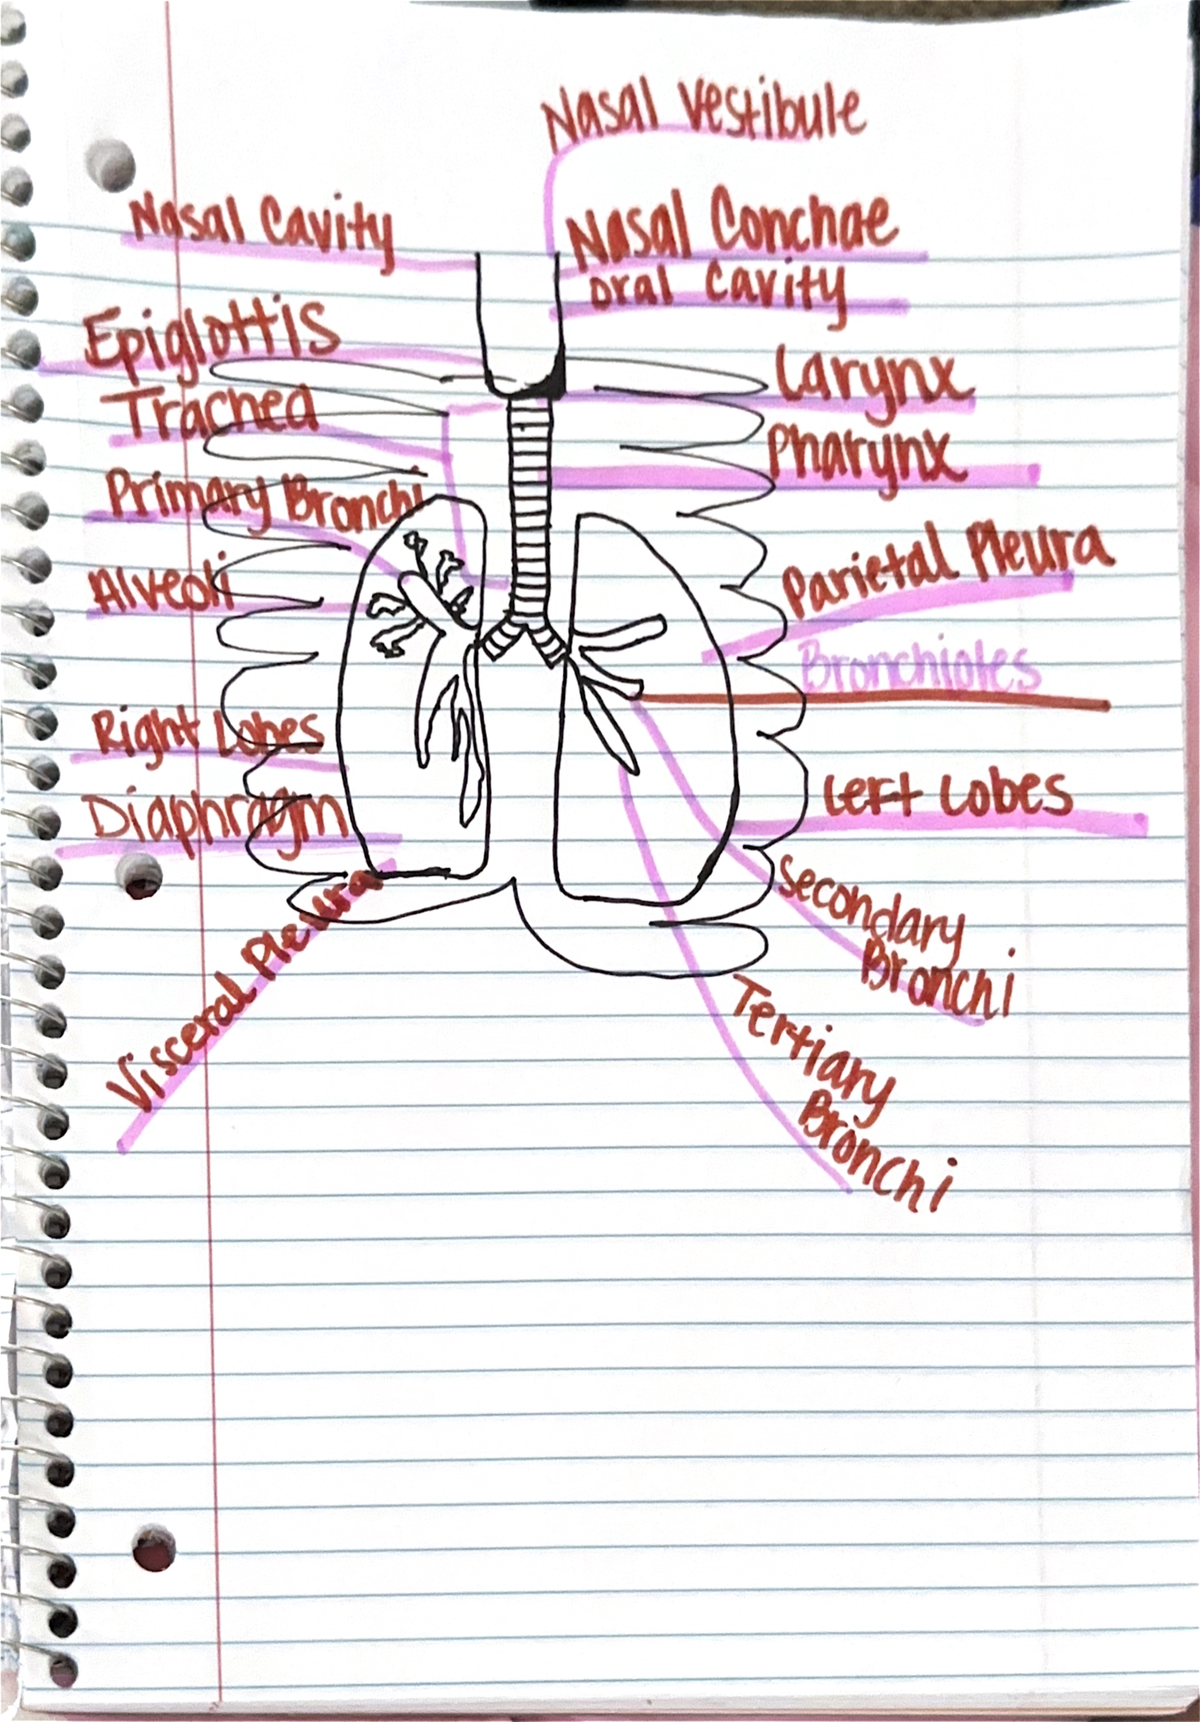 Nasal Vestibule
Nasal Cavity
Nasal Conchae
oral cavity
Epiglottis
Larynx
Trachea
Pharynx
Primary Bronchi
Parietal Pleura
Alveoli
Bronchioles
Right Lobes
Left Lobes
Diaphragm
Secondary
Bronchi
Visceral Pleura
Tertiary
Bronchi